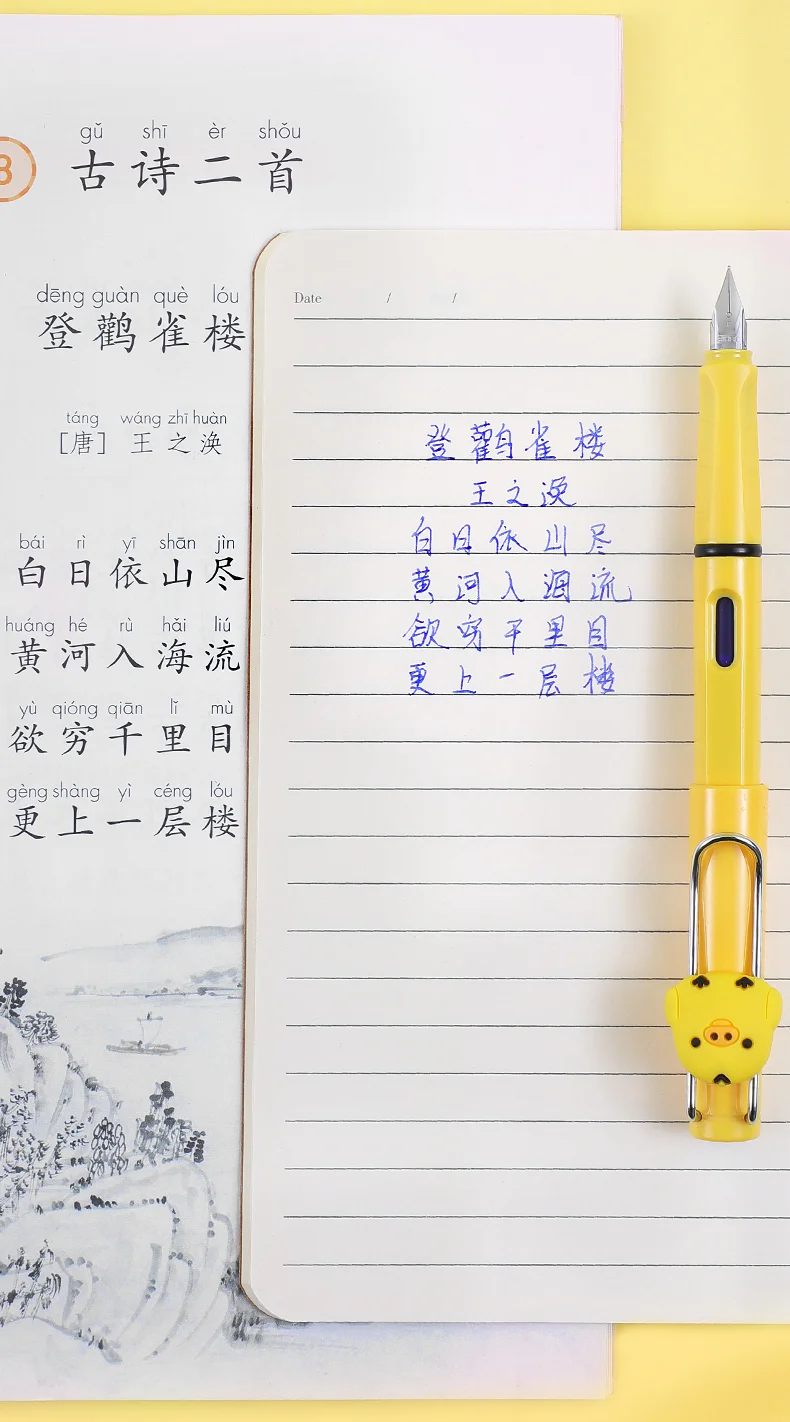 8
gǔ shī èr shǒu
古诗二首
dēng guàn què lóu
登鹳雀楼
táng wáng zhī huàn
[唐] 王之涣
bái rì yī shān jìn
白日依山尽
huáng hé rù hǎi liú
黄河入海流
yù qióng qiān lǐ mù
欲穷千里目
gèng shàng yì céng lóu
更上一层楼
Date / /
登鹳雀楼
王之涣
白日依山尽
黄河入海流
欲穷千里目
更上一层楼